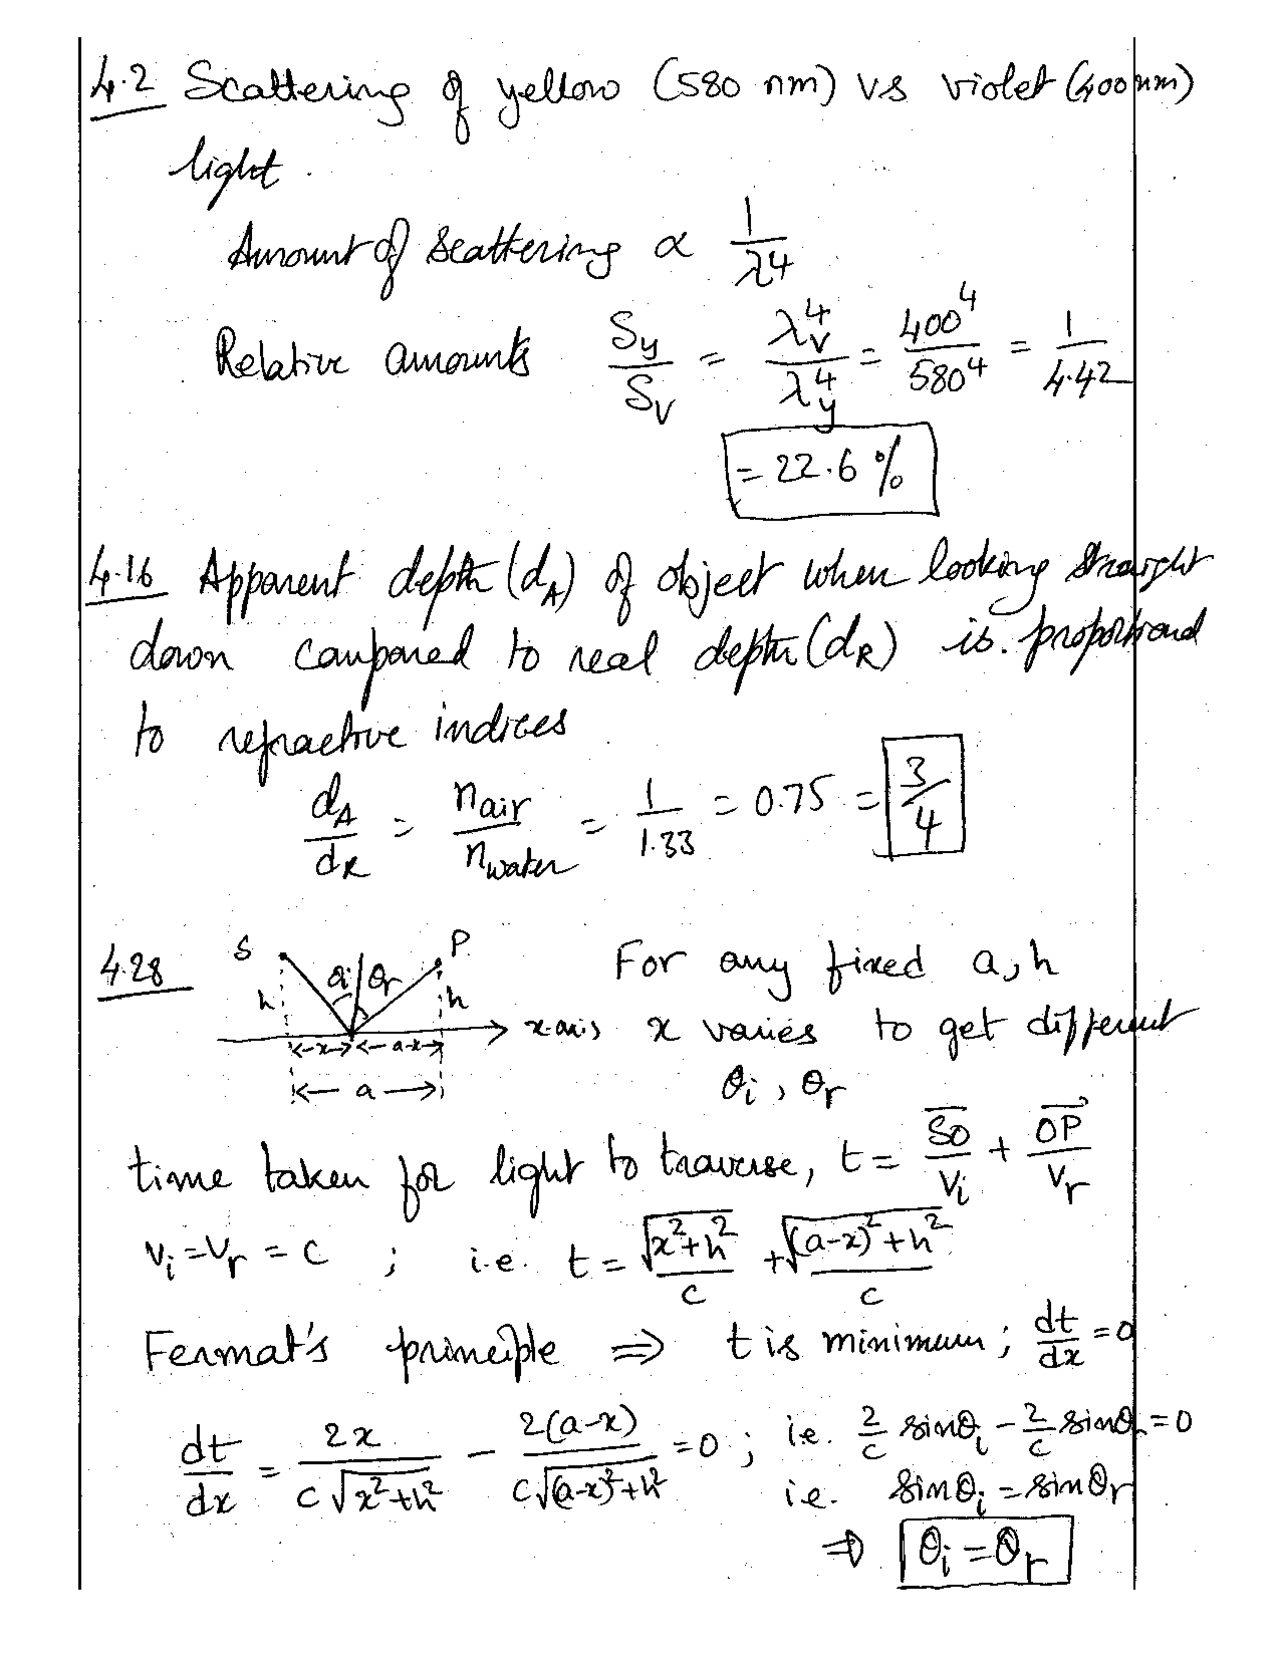 4.2 Scattering of yellow (580 nm) vs violet (400nm)
light.
Amount of scattering ∝ 1/λ⁴
Relative amounts S_y/S_v = λ_v⁴/λ_y⁴ = 400⁴/580⁴ = 1/4.42
= 22.6 %
4.16 Apparent depth (d_A) of object when looking straight
down compared to real depth (d_R) is proportional
to refractive indices
d_A/d_R = n_air/n_water = 1/1.33 = 0.75 = 3/4
4.28 S P. For any fixed a, h
θi θr
h h
x-axis x varies to get different
x a-x
a θi, θr
time taken for light to traverse, t = SO/Vi + OP/Vr
Vi = Vr = c ; i.e. t = √(x²+h²)/c + √((a-x)²+h²)/c
Fermat's principle ⇒ t is minimum ; dt/dx = 0
dt/dx = 2x/(c√(x²+h²)) - 2(a-x)/(c√((a-x)²+h²)) = 0 ; i.e. 2/c sinθi - 2/c sinθr = 0
i.e. sinθi = sinθr
⇒ θi = θr